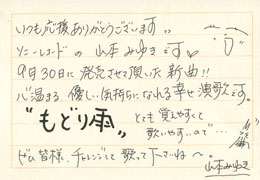 いつも応援ありがとうございます。
ソニーレコードの 山本みゆきです
9月30日に発売させて頂いた新曲!!
心温まる 優しい気持ちになれる幸せ演歌です。
"もどり雨" とても覚えやすくて
歌いやすいので…
ぜひ皆様、チャレンジして歌って下さいね〜。
山本みゆき